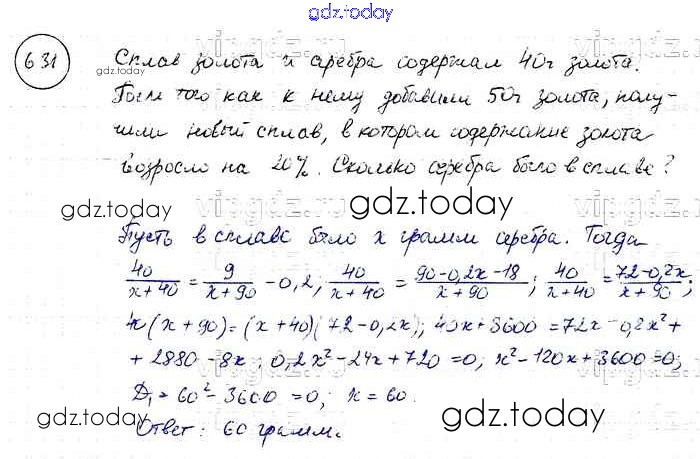 gdz.today
631
Сплав золота и серебра содержал 40г золота.
После того как к нему добавили 50г золота, полу-
чили новый сплав, в котором содержание золота
возросло на 20%. Сколько серебра было в сплаве?
gdz.today
Пусть в сплаве было x грамм серебра. Тогда
40/(x+40) = 9/(x+90) - 0,2; 40/(x+40) = (90-0,2x-18)/(x+90); 40/(x+40) = (72-0,2x)/(x+90);
(x+90)=(x+40)(72-0,2x); 40x+3600=72x-0,2x²+
+2880-8x; 0,2x²-24x+720=0; x²-120x+3600=0;
D₁=60²-3600=0; x=60.
Ответ: 60 грамм.
gdz.today